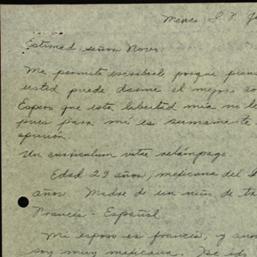 México D. F.
Estimad. señor
Me permito escribirle porque
usted puede darme el mejor
Espero que esta libertad mía no le
pues para mí es sumamente
opinión.
Un curriculum vitae relámpago.
Edad 29 años, mexicana del
años. Madre de un niño de
Francés - Español
Mi esposo es francés, y
soy muy mexicana.